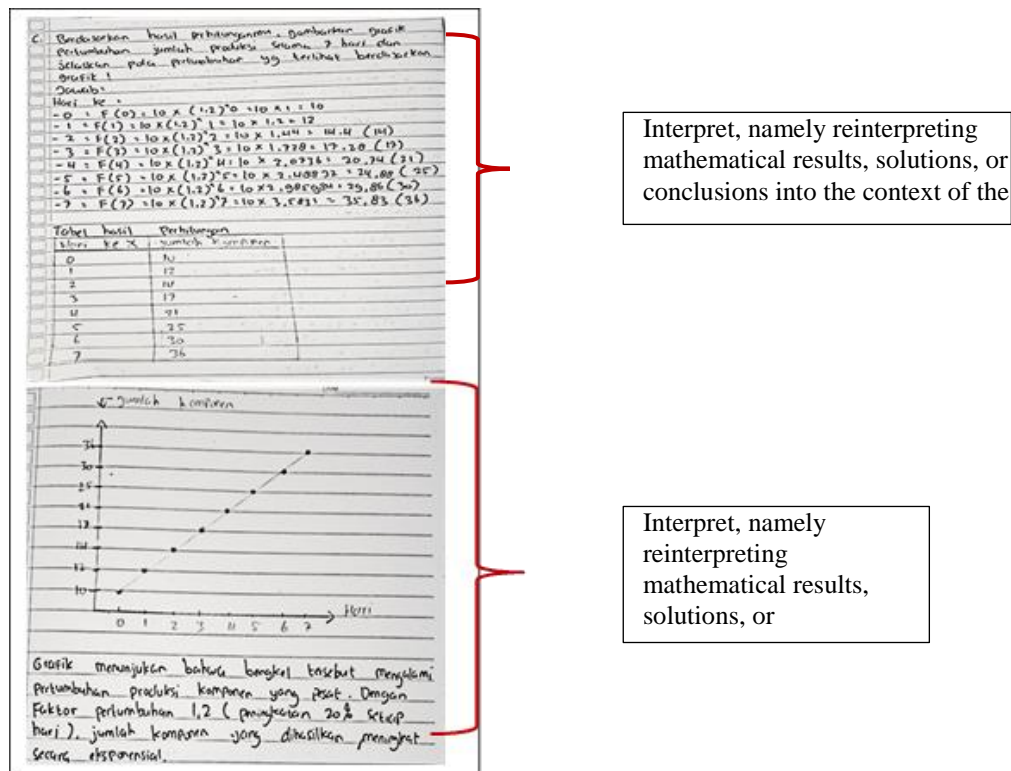 C. Berdasarkan hasil perhitunganmu, gambarkan grafik
pertumbuhan jumlah produksi selama 7 hari dan
jelaskan pola pertumbuhan yg terlihat berdasarkan
grafik !
Jawab:
Hari ke :
- 0 = F(0) = 10 x (1,2)^0 = 10 x 1 = 10
- 1 = F(1) = 10 x (1,2)^1 = 10 x 1.2 = 12
- 2 = F(2) = 10 x (1,2)^2 = 10 x 1.44 = 14.4 (14)
- 3 = F(3) = 10 x (1,2)^3 = 10 x 1.728 = 17.28 (17)
- 4 = F(4) = 10 x (1,2)^4 = 10 x 2.0736 = 20,74 (21)
- 5 = F(5) = 10 x (1,2)^5 = 10 x 2.48832 = 24,88 (25)
- 6 = F(6) = 10 x (1,2)^6 = 10 x 2.985984 = 29,86 (30)
- 7 = F(7) = 10 x (1,2)^7 = 10 x 3.5831 = 35,83 (36)
Tabel hasil Perhitungan
Hari ke x jumlah komponen
0 10
1 12
2 14
3 17
4 21
5 25
6 30
7 36
jumlah komponen
36
30
25
21
17
14
12
10
Hari
0 1 2 3 4 5 6 7
Grafik menunjukan bahwa bengkel tersebut mengalami
pertumbuhan produksi komponen yang pesat. Dengan
Faktor pertumbuhan 1,2 (peningkatan 20% setiap
hari), jumlah komponen yang dihasilkan meningkat
secara eksponensial.
Interpret, namely reinterpreting
mathematical results, solutions, or
conclusions into the context of the
Interpret, namely
reinterpreting
mathematical results,
solutions, or